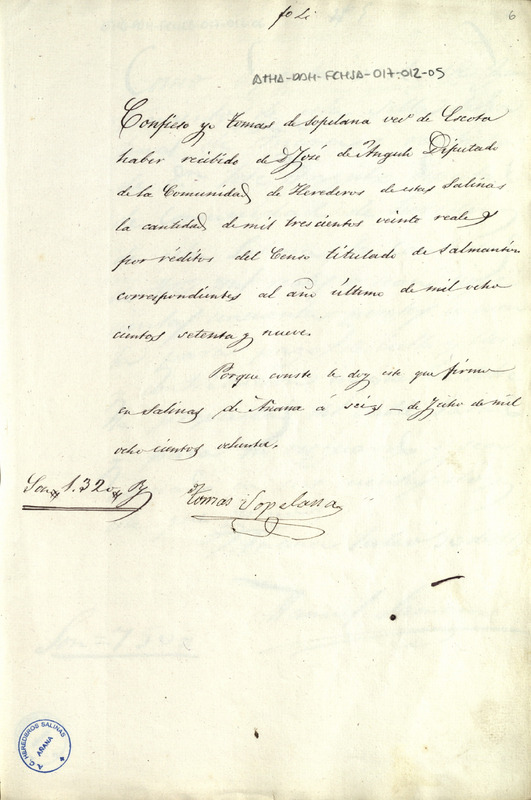 fo Li
6
ATHA-DAH-FCHSA-017-012-05
Confieso yo Tomas de Sopelana vecº de Escota
haber recibido de D José de Angulo Diputado
de la Comunidad de Herederos de estas Salinas
la cantidad de mil trescientos veinte reales
por réditos del Censo titulado de Salmantin
correspondientes al año último de mil ocho
cientos setenta y nueve.
Porque conste le doy este que firmo
en Salinas de Añana á seis de Julio de mil
ocho cientos ochenta.
Son 1.320 R
Tomas Sopelana
A.C. HEREDEROS SALINAS
AÑANA